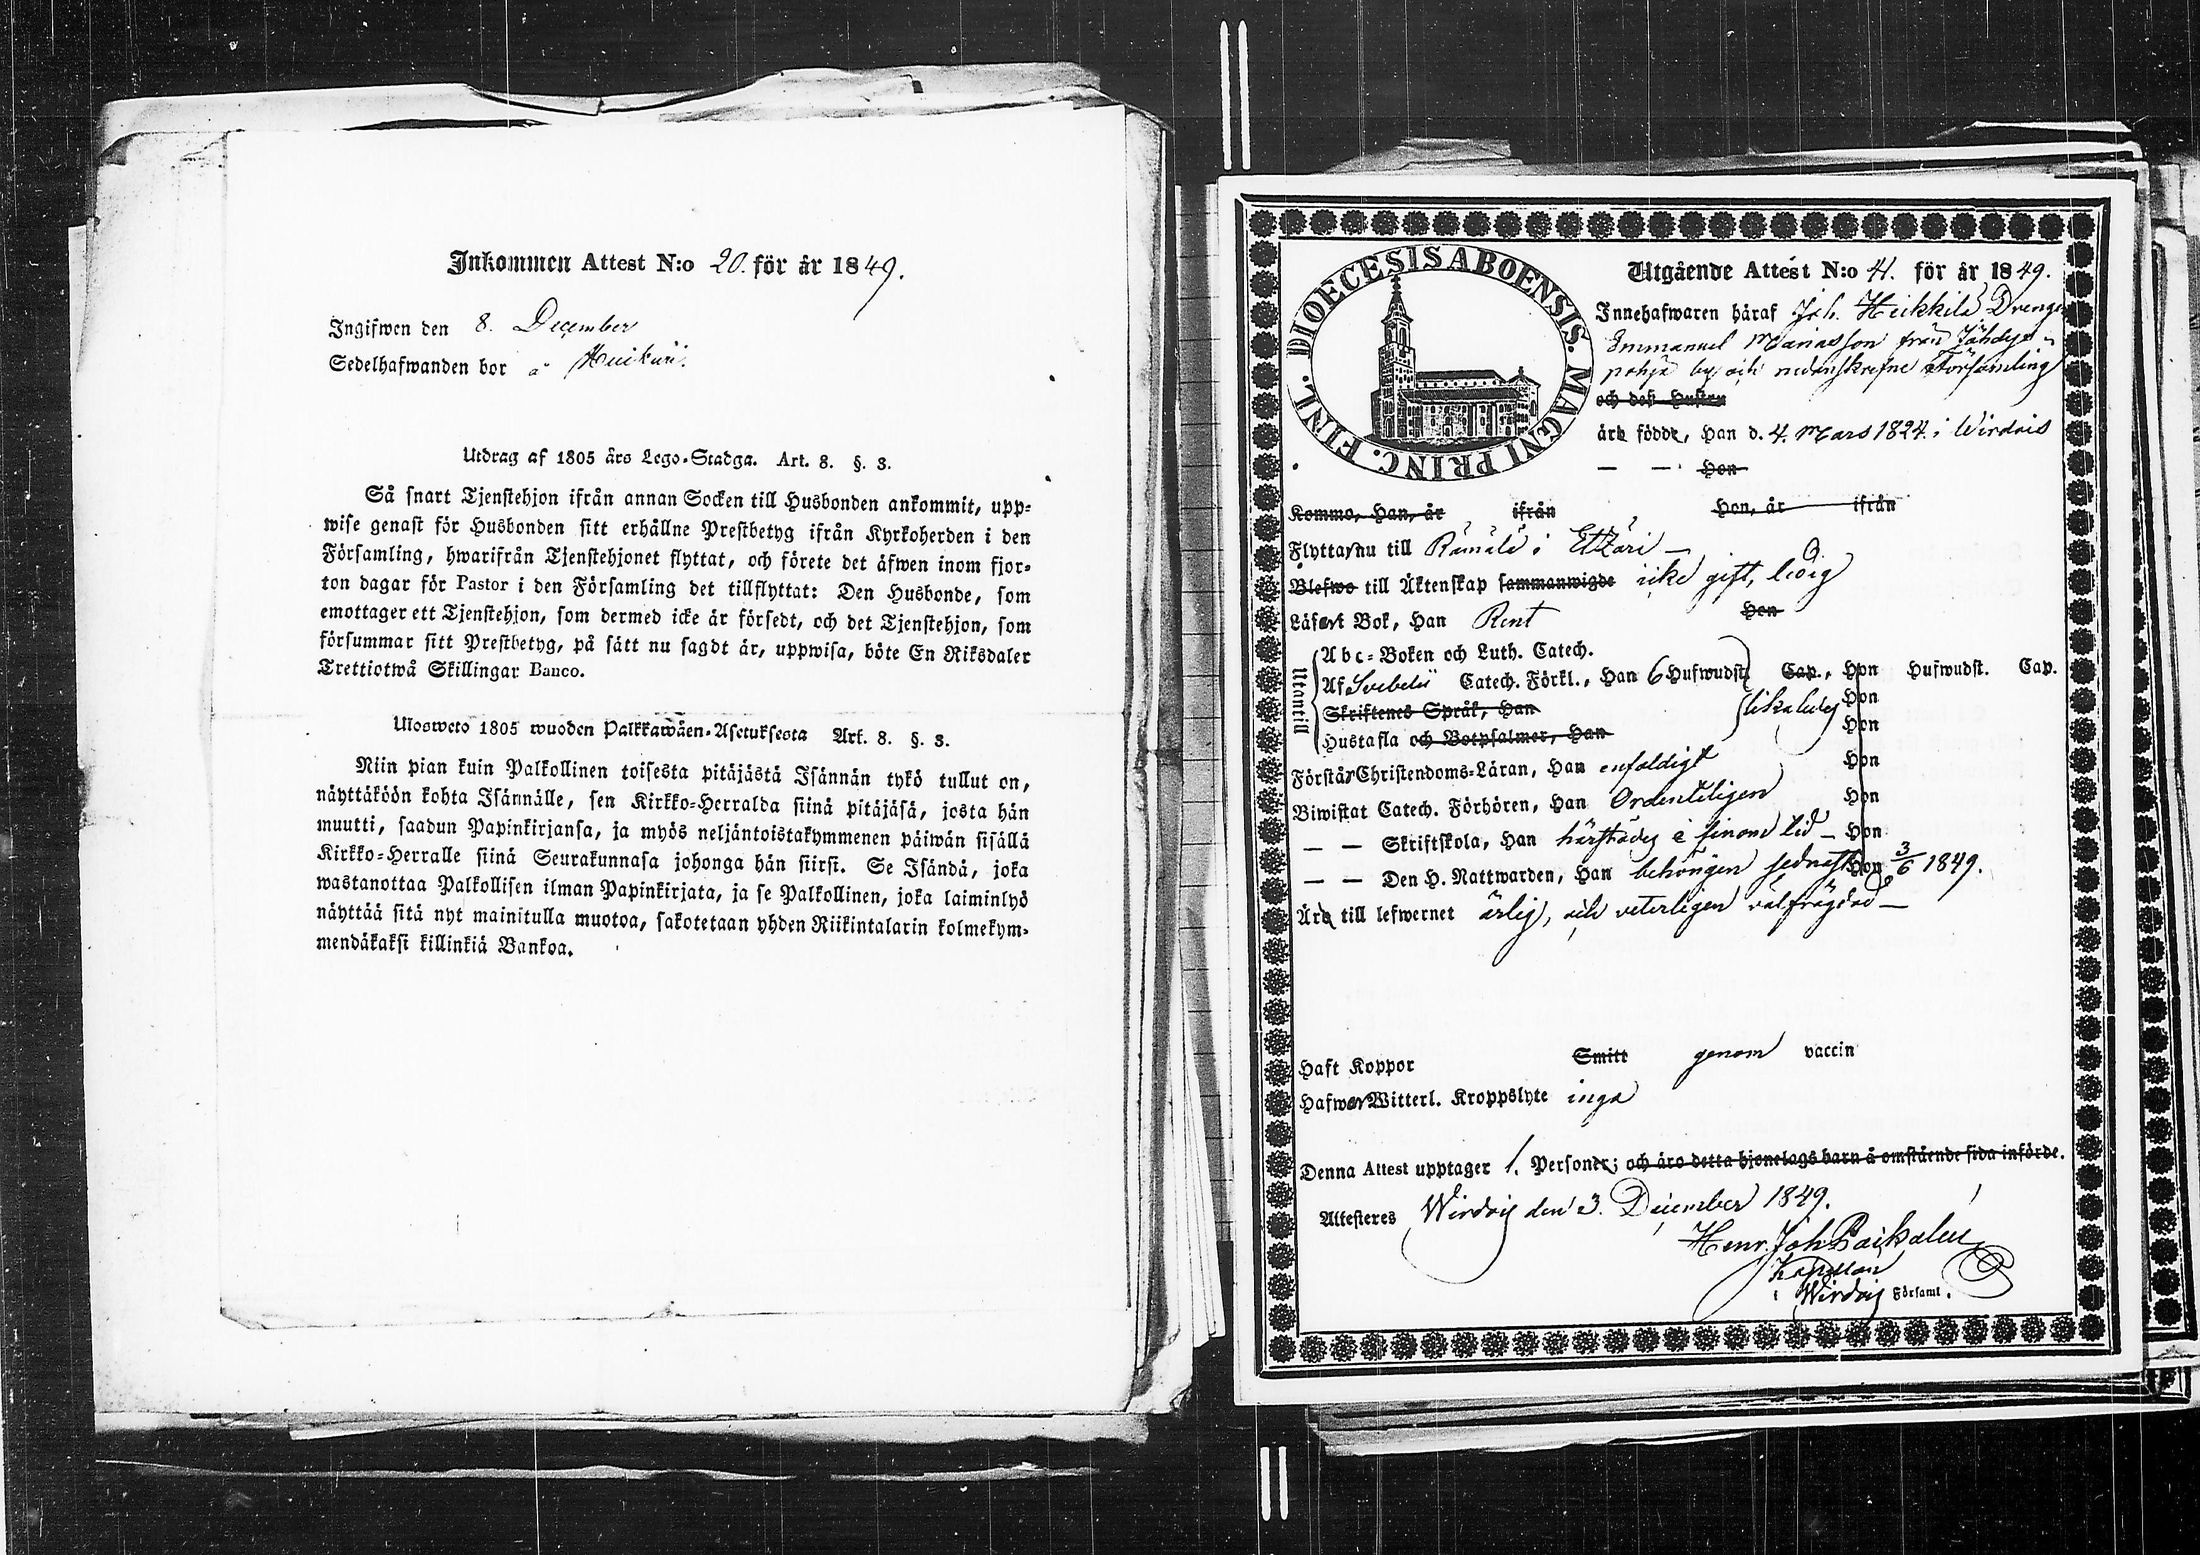 Inkommen Attest N:o 20. för år 1849.
Ingifwen den 8. December
Sedelhafwanden bor å
Utdrag af 1805 års Lego-Stadga. Art. 8. §. 3.
Så snart Tjenstehjon ifrån annan Socken till Husbonden ankommit, upp-
wise genast för Husbonden sitt erhållne Prestbetyg ifrån Kyrkoherden i den
Församling, hwarifrån Tjenstehjonet flyttat, och förete det äfwen inom fjor-
ton dagar för Pastor i den Församling det tillflyttat: Den Husbonde, som
emottager ett Tjenstehjon, som dermed icke är försedt, och det Tjenstehjon, som
försummar sitt Prestbetyg, på sätt nu sagdt är, uppwisa, böte En Riksdaler
Trettiotwå Skillingar Banco.
Ulosweto 1805 wuoden Palkkawäen-Asetuksesta Art. 8. §. 3.
Niin pian kuin Palkollinen toisesta pitäjästä Isännän tykö tullut on,
näyttäköön kohta Isännälle, sen Kirkko-Herralda siinä pitäjäsä, josta hän
muutti, saadun Papinkirjansa, ja myös neljäntoistakymmenen päiwän sisällä
Kirkko-Herralle siinä Seurakunnasa johonga hän siirsi. Se Isändä, joka
wastanottaa Palkollisen ilman Papinkirjata, ja se Palkollinen, joka laiminlyö
näyttää sitä nyt mainitulla muotoa, sakotetaan yhden Riikintalarin kolmekym-
mendäkaksi killinkiä Bankoa.
DIOECESIS ABOENSIS. MAGNI PRINC. FINL.
Utgående Attest N:o 41. för år 1849.
Innehafwaren häraf Joh. Heikkilä Drengen
Emmanuel från Jähdys-
pohja by och nedanskrefne Församling
och deß Hustru
äro födde, Han d. 4. Mars 1824. i Wirdois
— — Hon
Kommo, Han, år ifrån Hon, år ifrån
Flytta nu till i Etzäri —
Blefwo till Äktenskap sammanwigde icke gift, ledig
Läser i Bok, Han Rent Hon
Utantill
Abc-Boken och Luth. Catech.
Af Svebelii Catech. Förkl., Han 6 Hufwudst. Cap., Hon Hufwudst. Cap.
Skriftenes Språk, Han likaledes Hon
Hustafla och Botpsalmer, Han Hon
Förstår Christendoms-Läran, Han enfaldigt Hon
Biwistat Catech. Förhören, Han Ordenteligen Hon
— — Skriftskola, Han härstädes i sinom tid — Hon
— — Den H. Nattwarden, Han behörigen sednast Hon 3/6 1849.
Äro till lefwernet ärlig, och veterligen välfrägdad —
Haft Koppor Smitt genom vaccin
Hafwa Witterl. Kroppslyte inga
Denna Attest upptager 1. Personer; och äro detta hjonelags barn å omstående sida införde.
Attesteres Wirdois den 3. December 1849.
Henr. Joh
Kapellan
i Wirdois Församl.